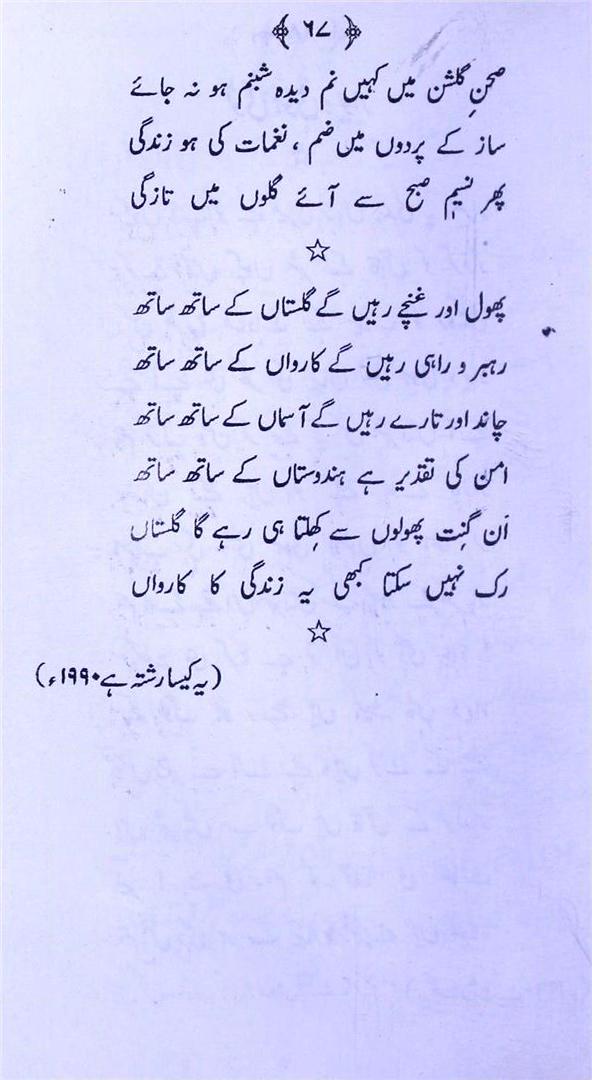 ۶۷
صحنِ گلشن میں کہیں نم دیدہ شبنم ہو نہ جائے
ساز کے پردوں میں ضم ، نغمات کی ہو زندگی
پھر نسیمِ صبح سے آئے گلوں میں تازگی
☆
پھول اور غنچے رہیں گے گلستاں کے ساتھ ساتھ
رہبر و راہی رہیں گے کارواں کے ساتھ ساتھ
چاند اور تارے رہیں گے آسماں کے ساتھ ساتھ
امن کی تقدیر ہے ہندوستاں کے ساتھ ساتھ
اَن گِنت پھولوں سے کھِلتا ہی رہے گا گلستاں
رک نہیں سکتا کبھی یہ زندگی کا کارواں
☆
(یہ کیسا رشتہ ہے ۱۹۹۰ء)